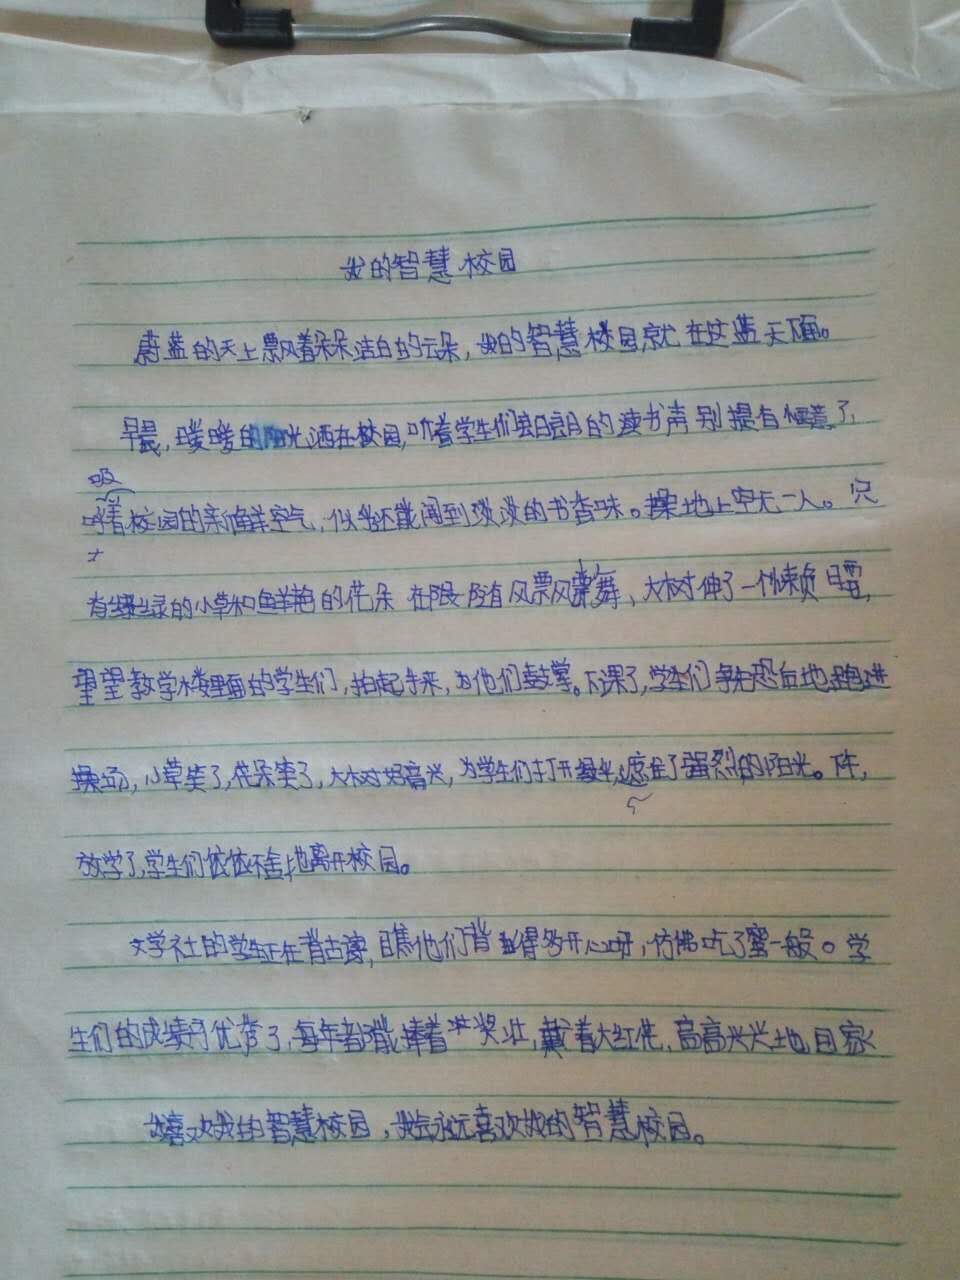 我的智慧校园
蔚蓝的天上飘着朵朵洁白的云朵，我的智慧校园就在这蓝天下面。
早晨，暖暖的阳光洒在校园，听着学生们朗朗的读书声别提有惬意了，
吸
着校园的新鲜空气，似乎还能闻到淡淡的书香味。操场上空无一人。只
有绿绿的小草和鲜艳的花朵在跟随风飘舞，大树伸了一个懒腰，
望望教学楼里面的学生们，拍起手来，为他们鼓掌。下课了，学生们争先恐后地跑进
操场，小草笑了，花朵笑了，大树好高兴，为学生们打开绿伞，遮住了强烈的阳光。下午，
放学了，学生们依依不舍地离开校园。
文学社的学生正在背古诗，瞧他们背得多开心呀，仿佛吃了蜜一般。学
生们的成绩可优秀了，每年都能捧着奖状，戴着大红花，高高兴兴地回家
我喜欢我的智慧校园，我会永远喜欢我的智慧校园。